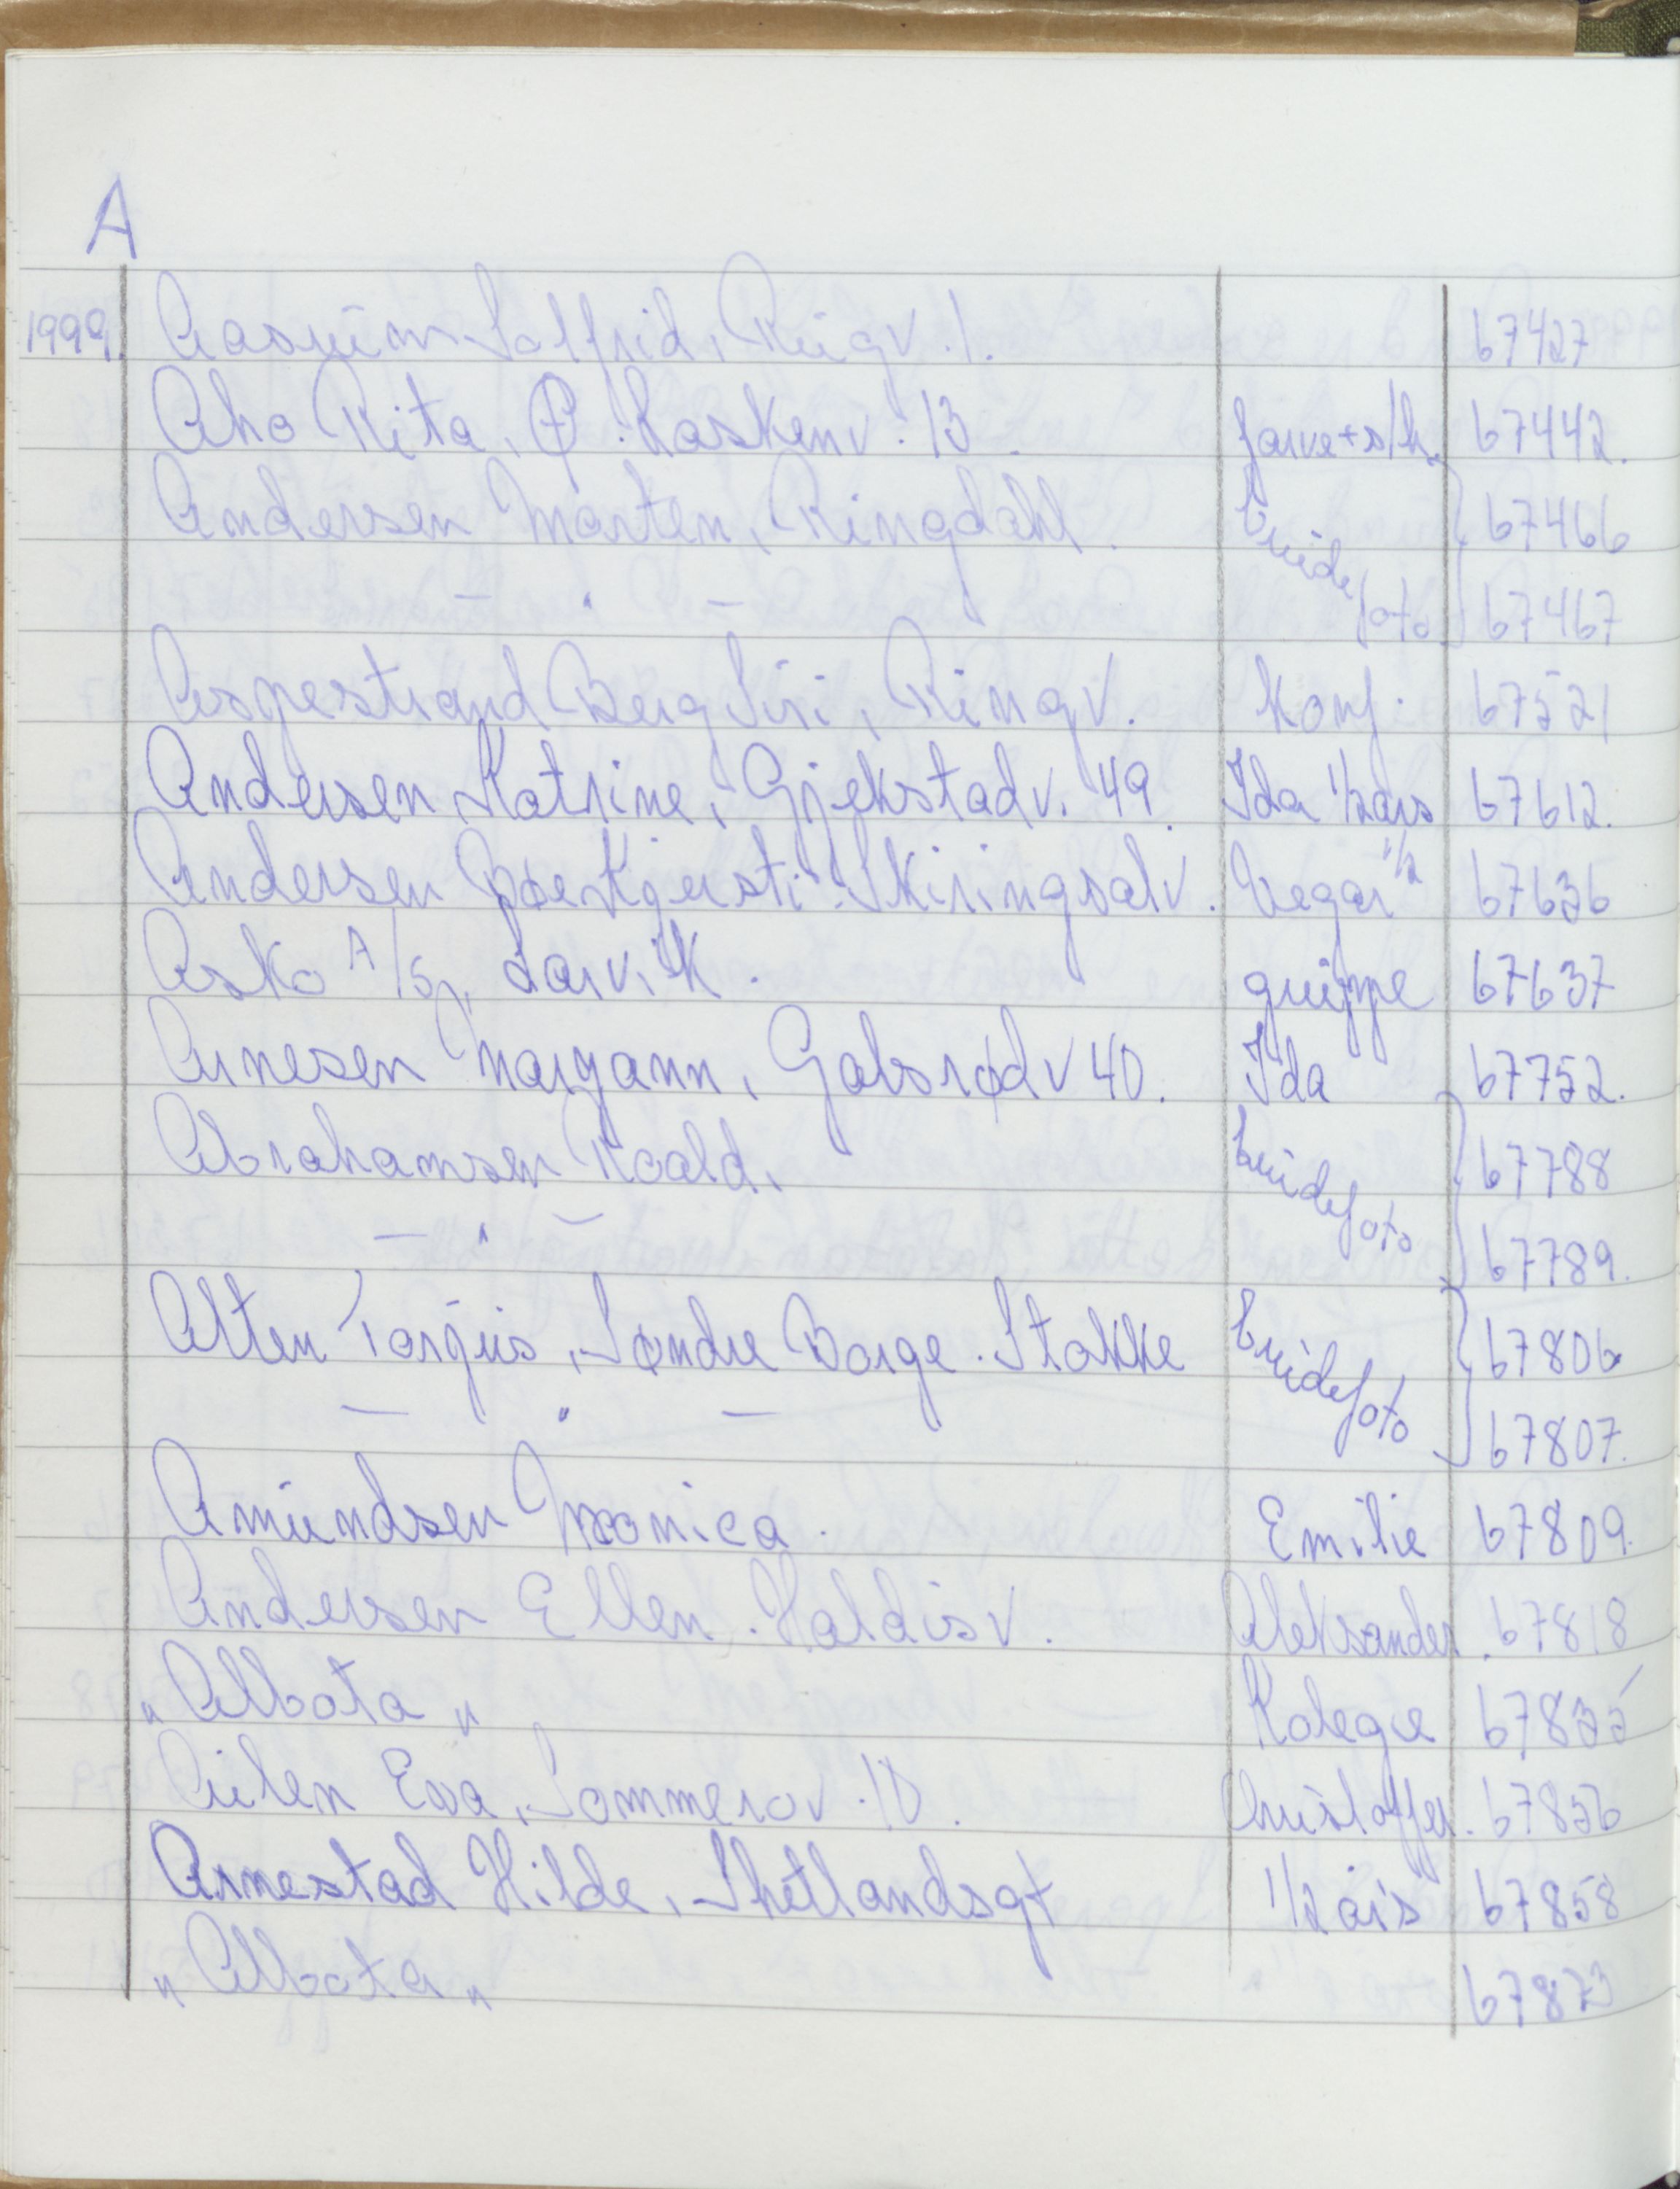 A
1999. Aasrum Solfrid, Ringv. 1. 67427
Aho Rita, Ø. Laskenv. 13. farve+s/h. 67442.
Andersen Morten, Ringdahl. brudefoto 67466
— " — 67467
Aspestrand Berg Siri, Ringv. Konf. 67521
Andersen Katrine, Gjekstadv. 49. Ida 1/2 års 67612.
Andersen Kjersti. Skiringsalv. Vegar 1/2 67636
Asko A/S, Larvik. gruppe 67637
Arnesen Mayann, Gabsrødv 40. Ida 67752.
Abrahamsen Roald, brudefoto 67788
— " — 67789.
Alten Torjus, Søndre Borge. Stokke brudefoto 67806
— " — 67807.
Amundsen Monica. Emilie 67809.
Andersen Ellen. Haldisv. Aleksander. 67818
"Albata" Kolega 67835
Aulen Eva, Sommerov. 10. Christoffer. 67856
Arnestad Hilde, Shetlandsgt 1/2 års 67858
"Albata" 67873